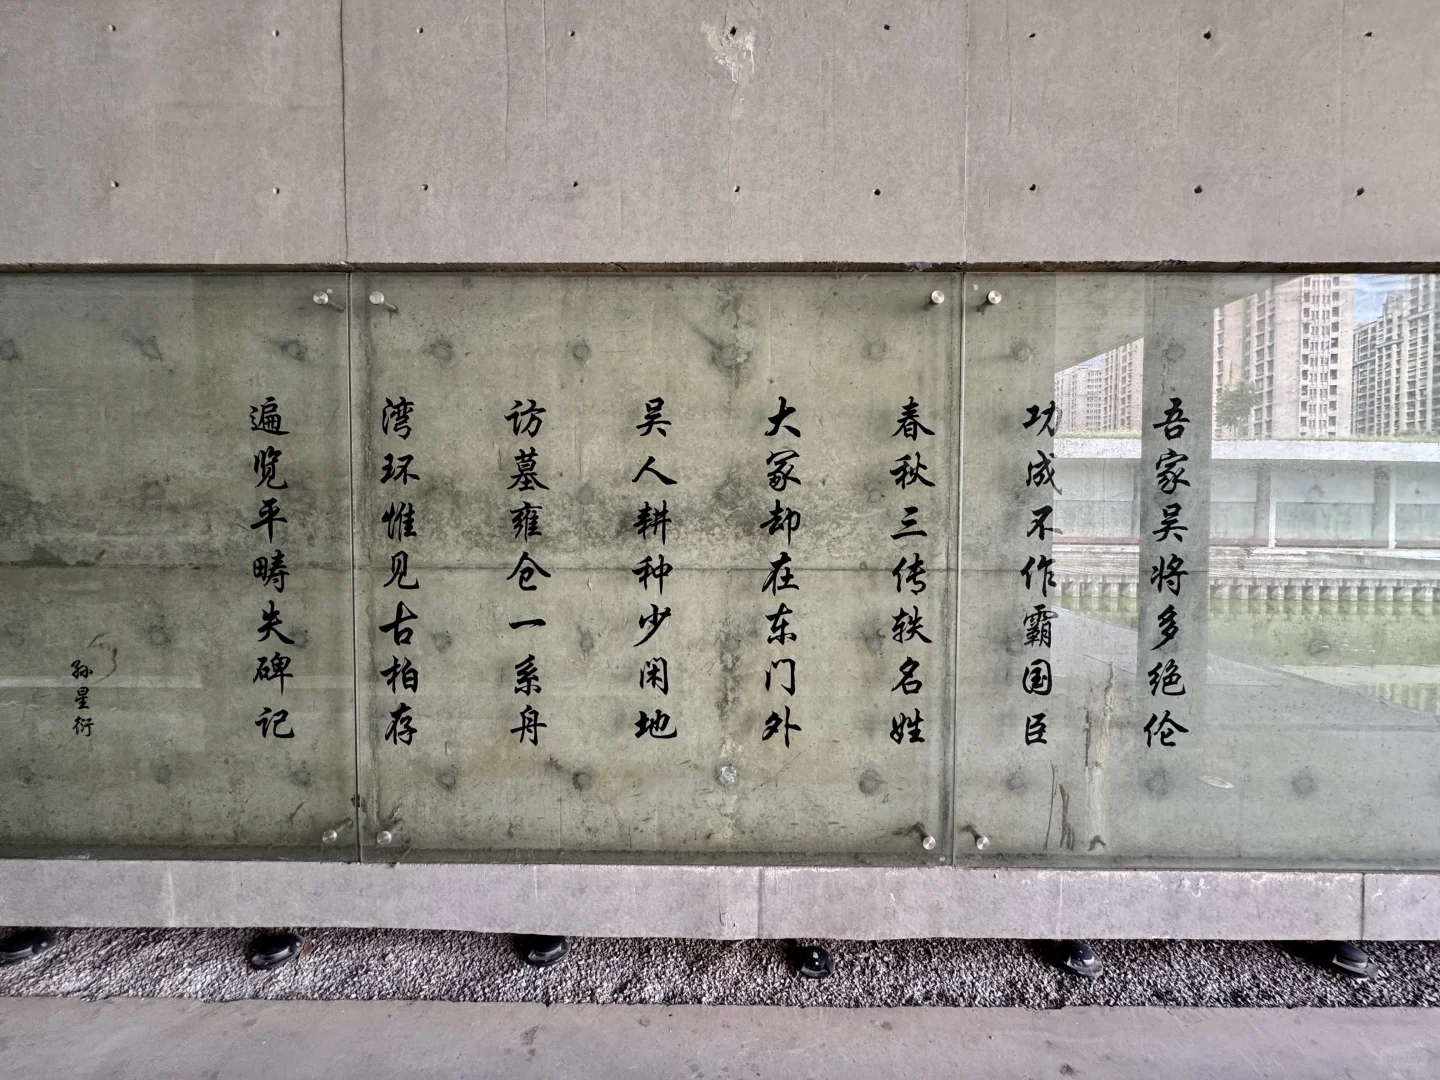 吾家吴将多绝伦
功成不作霸国臣
春秋三传轶名姓
大冢却在东门外
吴人耕种少闲地
访墓雍仓一系舟
湾环惟见古柏存
遍览平畴失碑记
孙星衍